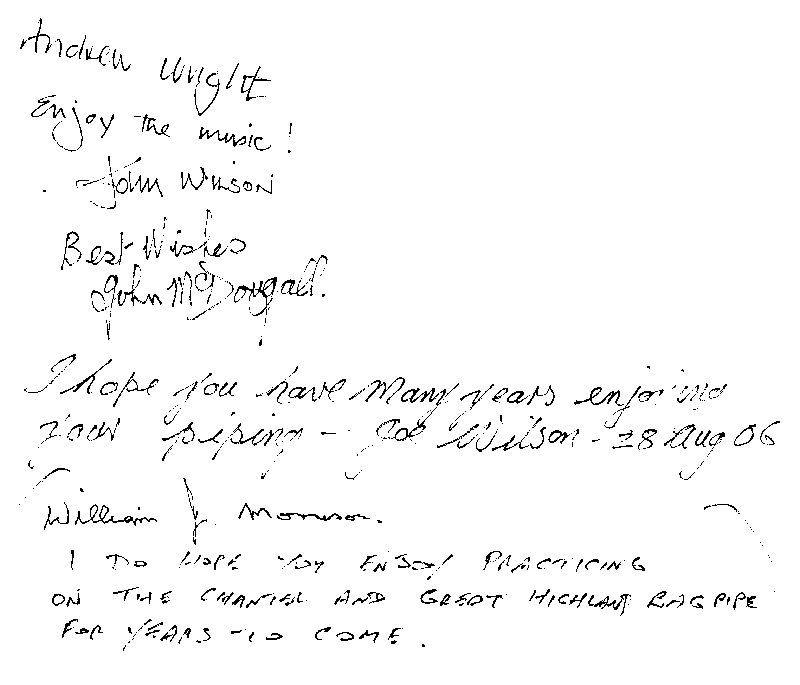 Andrew Wright
Enjoy the music!
John Wilson
Best Wishes
John McDougall.
I hope you have Many years enjoying
your piping - Joe Wilson - 28 Aug 06
William J. Morrison.
I DO HOPE YOU ENJOY PRACTICING
ON THE CHANTER AND GREAT HIGHLAND BAGPIPE
FOR YEARS TO COME.